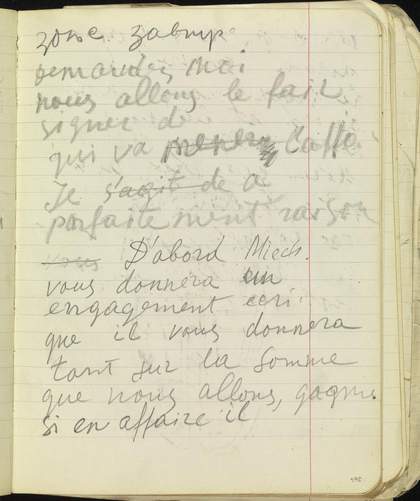 demandez moi
nous allons le fair
signer de
qui va mener l'affe
Je s'agit de a
parfaitement raison
vous D'abord Miech.
vous donnera un
engagement ecri
que il vous donnera
tant sur la somme
que nous allons, gagne
si en affaire il